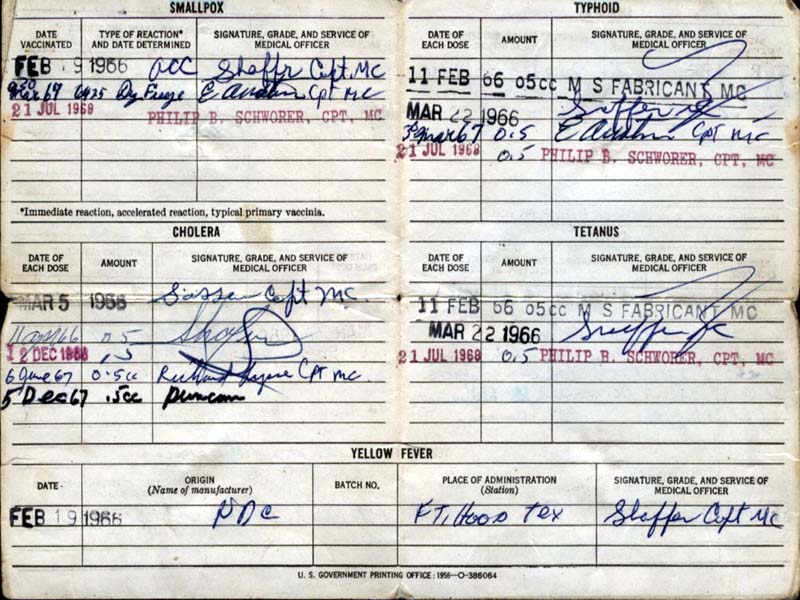 SMALLPOX
DATE VACCINATED
TYPE OF REACTION* AND DATE DETERMINED
SIGNATURE, GRADE, AND SERVICE OF MEDICAL OFFICER
FEB 19 1966 Shaffer Capt, MC
Mar 67 Dry Freeze E Austin Cpt MC
21 JUL 1968 PHILIP B. SCHWORER, CPT, MC
*Immediate reaction, accelerated reaction, typical primary vaccinia.
TYPHOID
DATE OF EACH DOSE
AMOUNT
SIGNATURE, GRADE, AND SERVICE OF MEDICAL OFFICER
11 FEB 66 05cc M S FABRICANT MC
MAR 22 1966
Mar 67 0.5 E Austin Cpt MC
21 JUL 1968 0.5 PHILIP B. SCHWORER, CPT, MC
CHOLERA
DATE OF EACH DOSE
AMOUNT
SIGNATURE, GRADE, AND SERVICE OF MEDICAL OFFICER
MAR 5 1966 Capt MC
0.5
12 DEC 1966 .5
6 June 67 0.5cc Richard Cpt MC
5 Dec 67 .5cc Duncan
TETANUS
DATE OF EACH DOSE
AMOUNT
SIGNATURE, GRADE, AND SERVICE OF MEDICAL OFFICER
11 FEB 66 05cc M S FABRICANT MC
MAR 22 1966
21 JUL 1968 0.5 PHILIP B. SCHWORER, CPT, MC
YELLOW FEVER
DATE
ORIGIN (Name of manufacturer)
BATCH NO.
PLACE OF ADMINISTRATION (Station)
SIGNATURE, GRADE, AND SERVICE OF MEDICAL OFFICER
FEB 19 1966 NDC FT, HOOD TEX Shaffer Capt MC
U. S. GOVERNMENT PRINTING OFFICE : 1956—O-386064